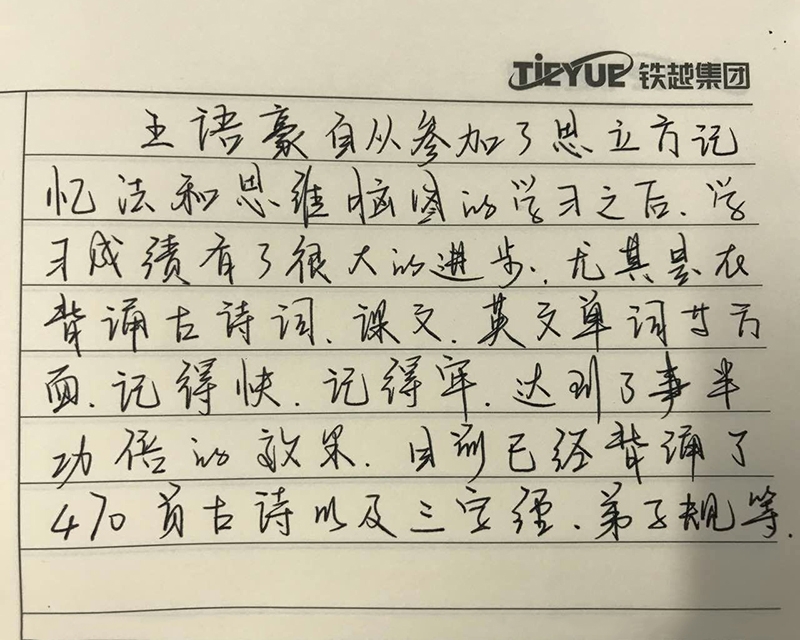 TIEYUE 铁越集团
王语豪自从参加了思立方记
忆法和思维脑图的学习之后、学
习成绩有了很大的进步、尤其是在
背诵古诗词、课文、英文单词等方
面、记得快、记得牢、达到了事半
功倍的效果、目前已经背诵了
470首古诗以及三字经、弟子规等.